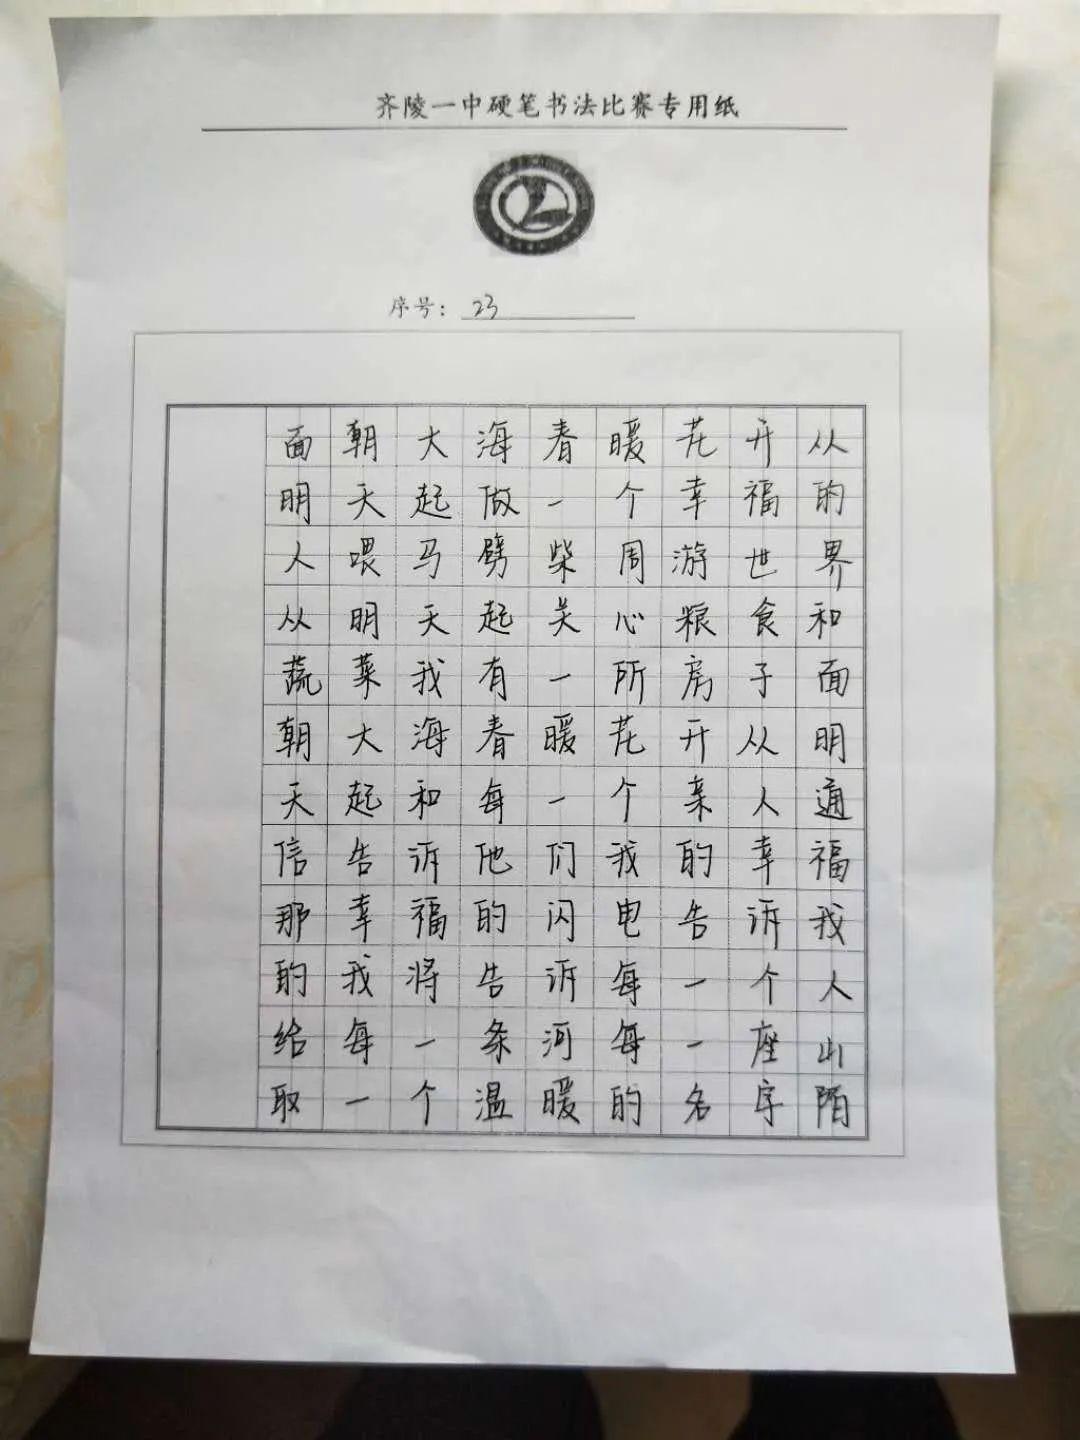 齐陵一中硬笔书法比赛专用纸
序号：23
面朝大海春暖花开从
明天起做一个幸福的
人喂马劈柴周游世界
从明天起关心粮食和
蔬菜我有一所房子面
朝大海春暖花开从明
天起和每一个亲人通
信告诉他们我的幸福
那幸福的闪电告诉我
的我将告诉每一个人
给每一条河每一座山
取一个温暖的名字陌